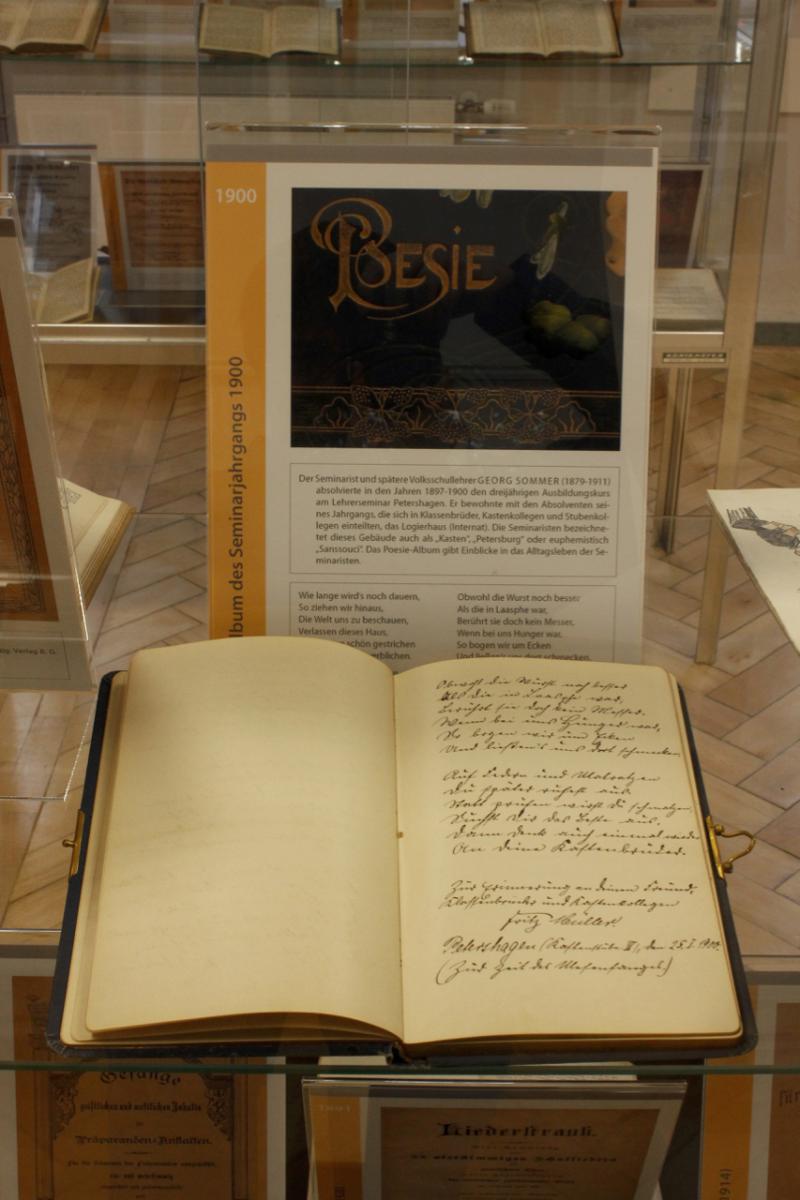 1900
Poesie
lbum des Seminarjahrgangs 1900
Der Seminarist und spätere Volksschullehrer GEORG SOMMER (1879-1911)
absolvierte in den Jahren 1897-1900 den dreijährigen Ausbildungskurs
am Lehrerseminar Petershagen. Er bewohnte mit den Absolventen sei-
nes Jahrgangs, die sich in Klassenbrüder, Kastenkollegen und Stubenkol-
legen einteilten, das Logierhaus (Internat). Die Seminaristen bezeichne-
tet dieses Gebäude auch als „Kasten", „Petersburg" oder euphemistisch
„Sanssouci". Das Poesie-Album gibt Einblicke in das Alltagsleben der Se-
minaristen.
Wie lange wird's noch dauern,
So ziehen wir hinaus,
Die Welt uns zu beschauen,
Verlassen dieses Haus,
schön gestrichen
erblichen.
Obwohl die Wurst noch besser
Als die in Laasphe war,
Berührt sie doch kein Messer,
Wenn bei uns Hunger war,
So bogen wir um Ecken
Und ließen's uns dort schmecken.
Obwohl die Wurst noch besser
Als die in Laasphe war,
Berührt sie doch kein Messer.
Wenn bei uns Hunger war,
So bogen wir um Ecken
Und ließen's uns dort schmecken.
Auf Federn und Matratzen
Du später ruhest aus
Statt prüfen wirst Du schmatzen,
Suchst Dir das Beste aus.
Dann denk auch einmal wieder
An Deine Kastenbrüder.
Zur Erinnerung an deinen Freund,
Klassenbruder und Kastenkollegen
Fritz Müller
Petershagen (Kastenstube II), den 25.I.1900.
(Zur Zeit des
Gesänge
geistlichen und weltlichen Inhalts
für
Präparanden-Anstalten.
Liederstrauß.